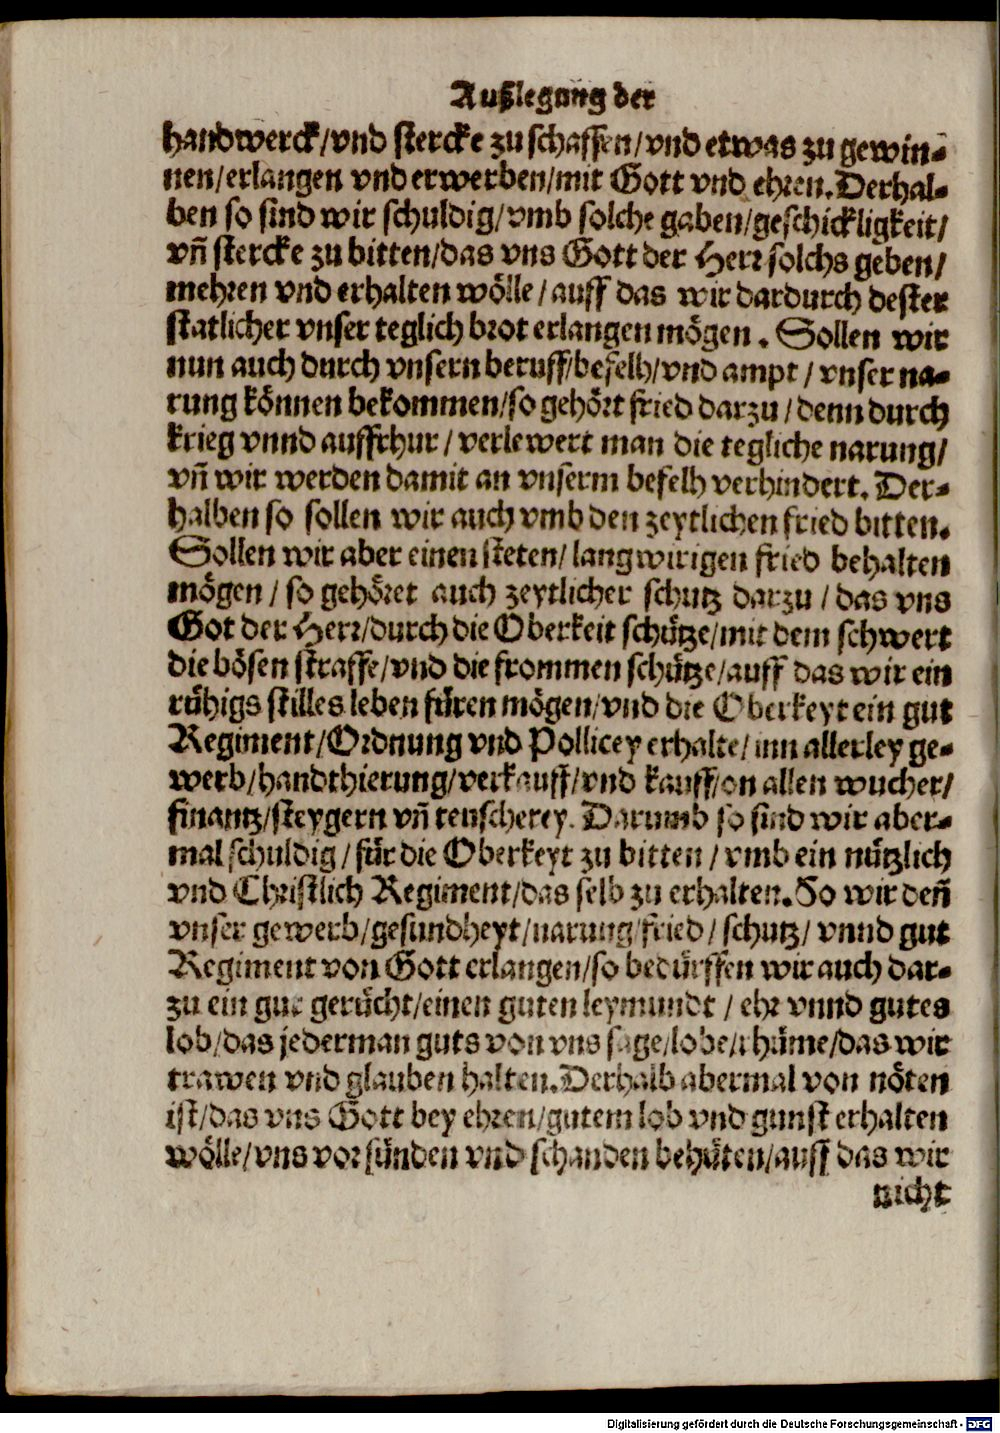 Außlegung der
handwerck/vnd stercke zu schaffen/vnd etwas zu gewin-
nen/erlangen vnd erwerben/mit Gott vnd ehren. Derhal-
ben so sind wir schuldig/vmb solche gaben/geschickligkeit/
vñ stercke zu bitten/das vns Gott der Herr solchs geben/
mehren vnd erhalten wölle/auff das wir dardurch dester
statlicher vnser teglich brot erlangen mögen. Sollen wir
nun auch durch vnsern beruff/befelh/vnd ampt/vnser na-
rung können bekommen/so gehört fried darzu/denn durch
krieg vnnd auffrhur/verlewert man die tegliche narung/
vñ wir werden damit an vnserm befelh verhindert. Der-
halben so sollen wir auch vmb den zeytlichen fried bitten.
Sollen wir aber einen steten/langwirigen fried behalten
mögen/so gehöret auch zeytlicher schutz darzu/das vns
Got der Herr/durch die Oberkeit schütze/mit dem schwert
die bösen straffe/vnd die frommen schütze/auff das wir ein
rühigs stilles leben füren mögen/vnd die Oberkeyt ein gut
Regiment/Ordnung vnd Pollicey erhalte/inn allerley ge-
werb/handthierung/verkauff/vnd kauff/on allen wucher/
finantz/steygern vñ teuscherey. Darumb so sind wir aber-
mal schuldig/für die Oberkeyt zu bitten/vmb ein nützlich
vnd Christlich Regiment/das selb zu erhalten. So wir deñ
vnser gewerb/gesundheyt/narung/fried/schutz/vnnd gut
Regiment von Gott erlangen/so bedürffen wir auch dar-
zu ein gut gerücht/einen guten leymundt/ehr vnnd gutes
lob/das jederman guts von vns sage/lobe/rhüme/das wir
trawen vnd glauben halten. Derhalb abermal von nöten
ist/das vns Gott bey ehren/gutem lob vnd gunst erhalten
wölle/vns vor sünden vnd schanden behüten/auff das wir
nicht
Digitalisierung gefördert durch die Deutsche Forschungsgemeinschaft - DFG